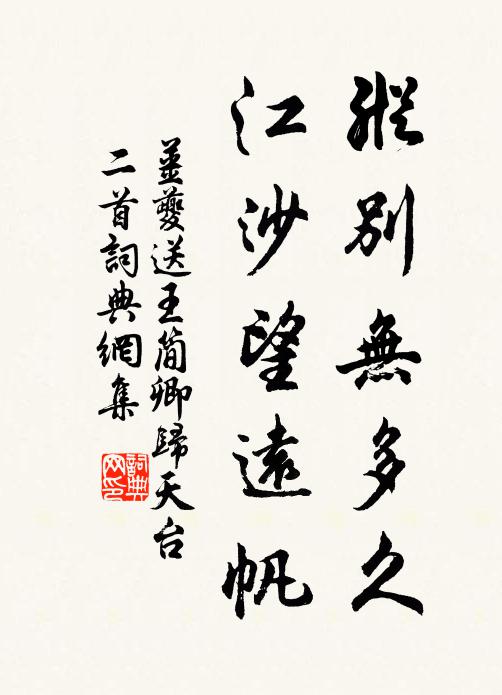 縱別無多久
江沙望遠帆
薑夔送王簡卿歸天台
二首詞典網集
詞典
网印